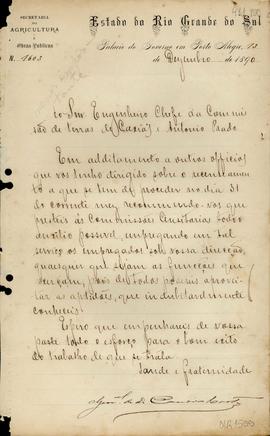 Estado do Rio Grande do Sul
SECRETARIA
DA
AGRICULTURA
e
Obras Publicas
N. 1603
Palacio do Governo em Porto Alegre, 13
de Dezembro de 1890.
Ao Snr. Engenheiro Chefe da Commis-
são de terras de Caxias e Antonio Prado
Em additamento a outros officios
que vos tenho dirigido sobre o recenseamen-
to a que se tem de proceder no dia 31
do corrente mez, recommendo-vos que
presteis ás Commissões Censitarias todo o
auxilio possivel, empregando em tal
serviço os empregados sob vossa direcção,
quaesquer que sejam as funcções que
exerçam, pois de todos podereis aprovei-
tar as aptidões, que indubitavelmente
conheceis.
Espero que empenhareis de vossa
parte todo o esforço para o bom exito
do trabalho de que se trata.
Saude e fraternidade